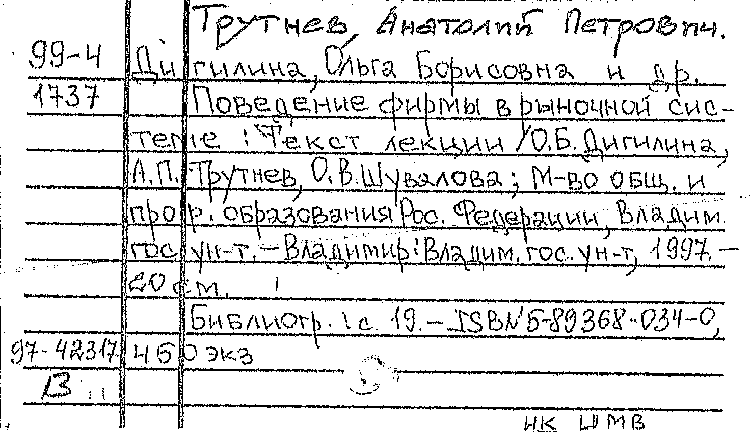 Трутнев, Анатолий Петрович.
99-4 Дигилина, Ольга Борисовна и др.
1737 Поведение фирмы в рыночной сис-
теме : Текст лекции / О.Б. Дигилина,
А.П. Трутнев, О.В. Шувалова; М-во общ. и
проф. образования Рос. Федерации, Владим.
гос. ун-т. – Владимир: Владим. гос. ун-т, 1997. –
20 см.
Библиогр.: с. 19. – ISBN 5-89368-034-0,
97-42317 450 экз
В
НК ЦМВ